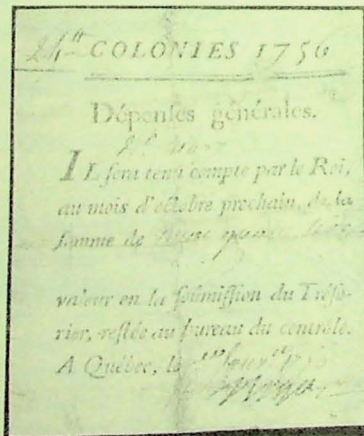 24ᵗᵗ COLONIES 1756
Dépenses générales.
IL sera tenu compte par le Roi,
au mois d'octobre prochain, de la
somme de vingt quatre livres
valeur en la soûmission du Tréso-
rier, restée au bureau du contrôle.
A Québec, le